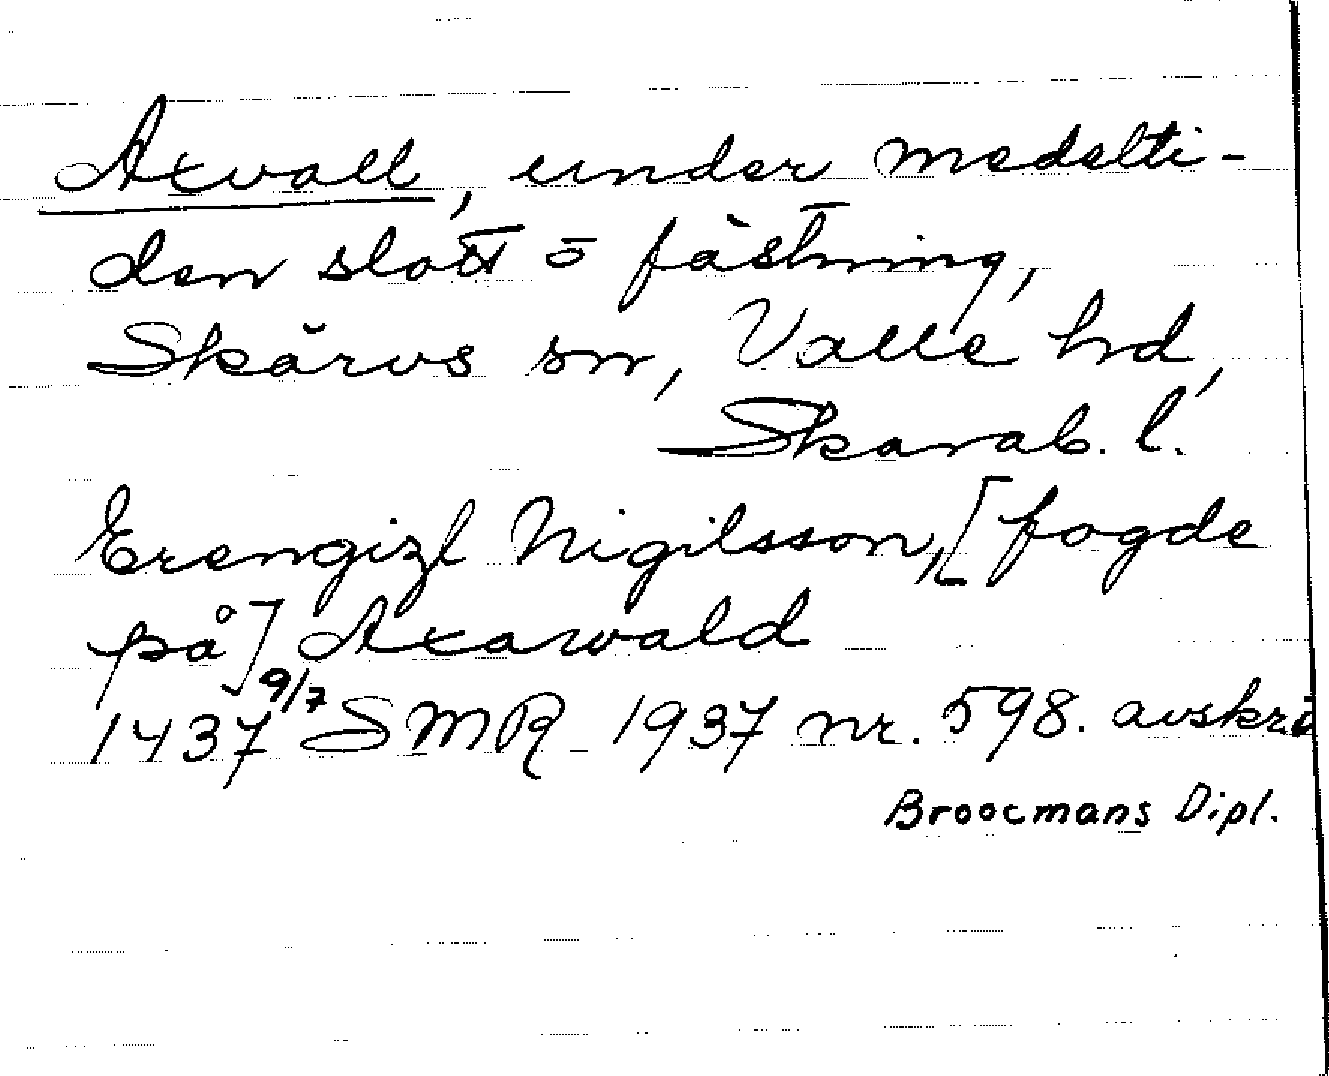 Axvall, under medelti-
den slott o fästning,
Skärvs sn, Valle hd,
Skarab. l.
Erengizl Nigilsson, [fogde
på] Axawald
1437 9/7 SMR 1937 nr. 598. avskri
Broocmans Dipl.